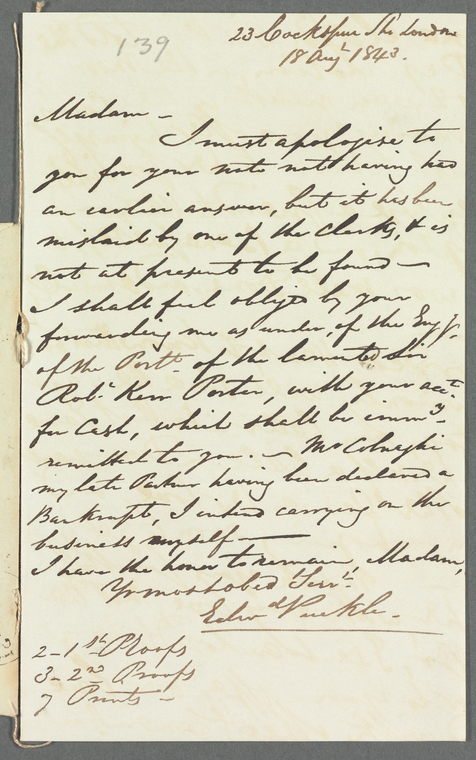 139
23 Cockspur Str London
18 Augt 1843.
Madam –
I must apologise to
you for your note not having had
an earlier answer, but it has been
mislaid by one of the Clerks, & is
not at present to be found —
I shall feel obliged by your
forwarding me as under, of the Engs.
of the Portt. of the lamented Sir
Robt Kerr Porter, with your acct.
for Cash, which shall be immy.
remitted to you. — Mr Colnaghi
my late Partner having been declared a
Bankrupt, I intend carrying on the
business myself —
I have the honor to remain, Madam,
Yr most obed Servt.
Edwd Puckle.
2 – 1st Proofs
3 – 2nd Proofs
7 Prints –